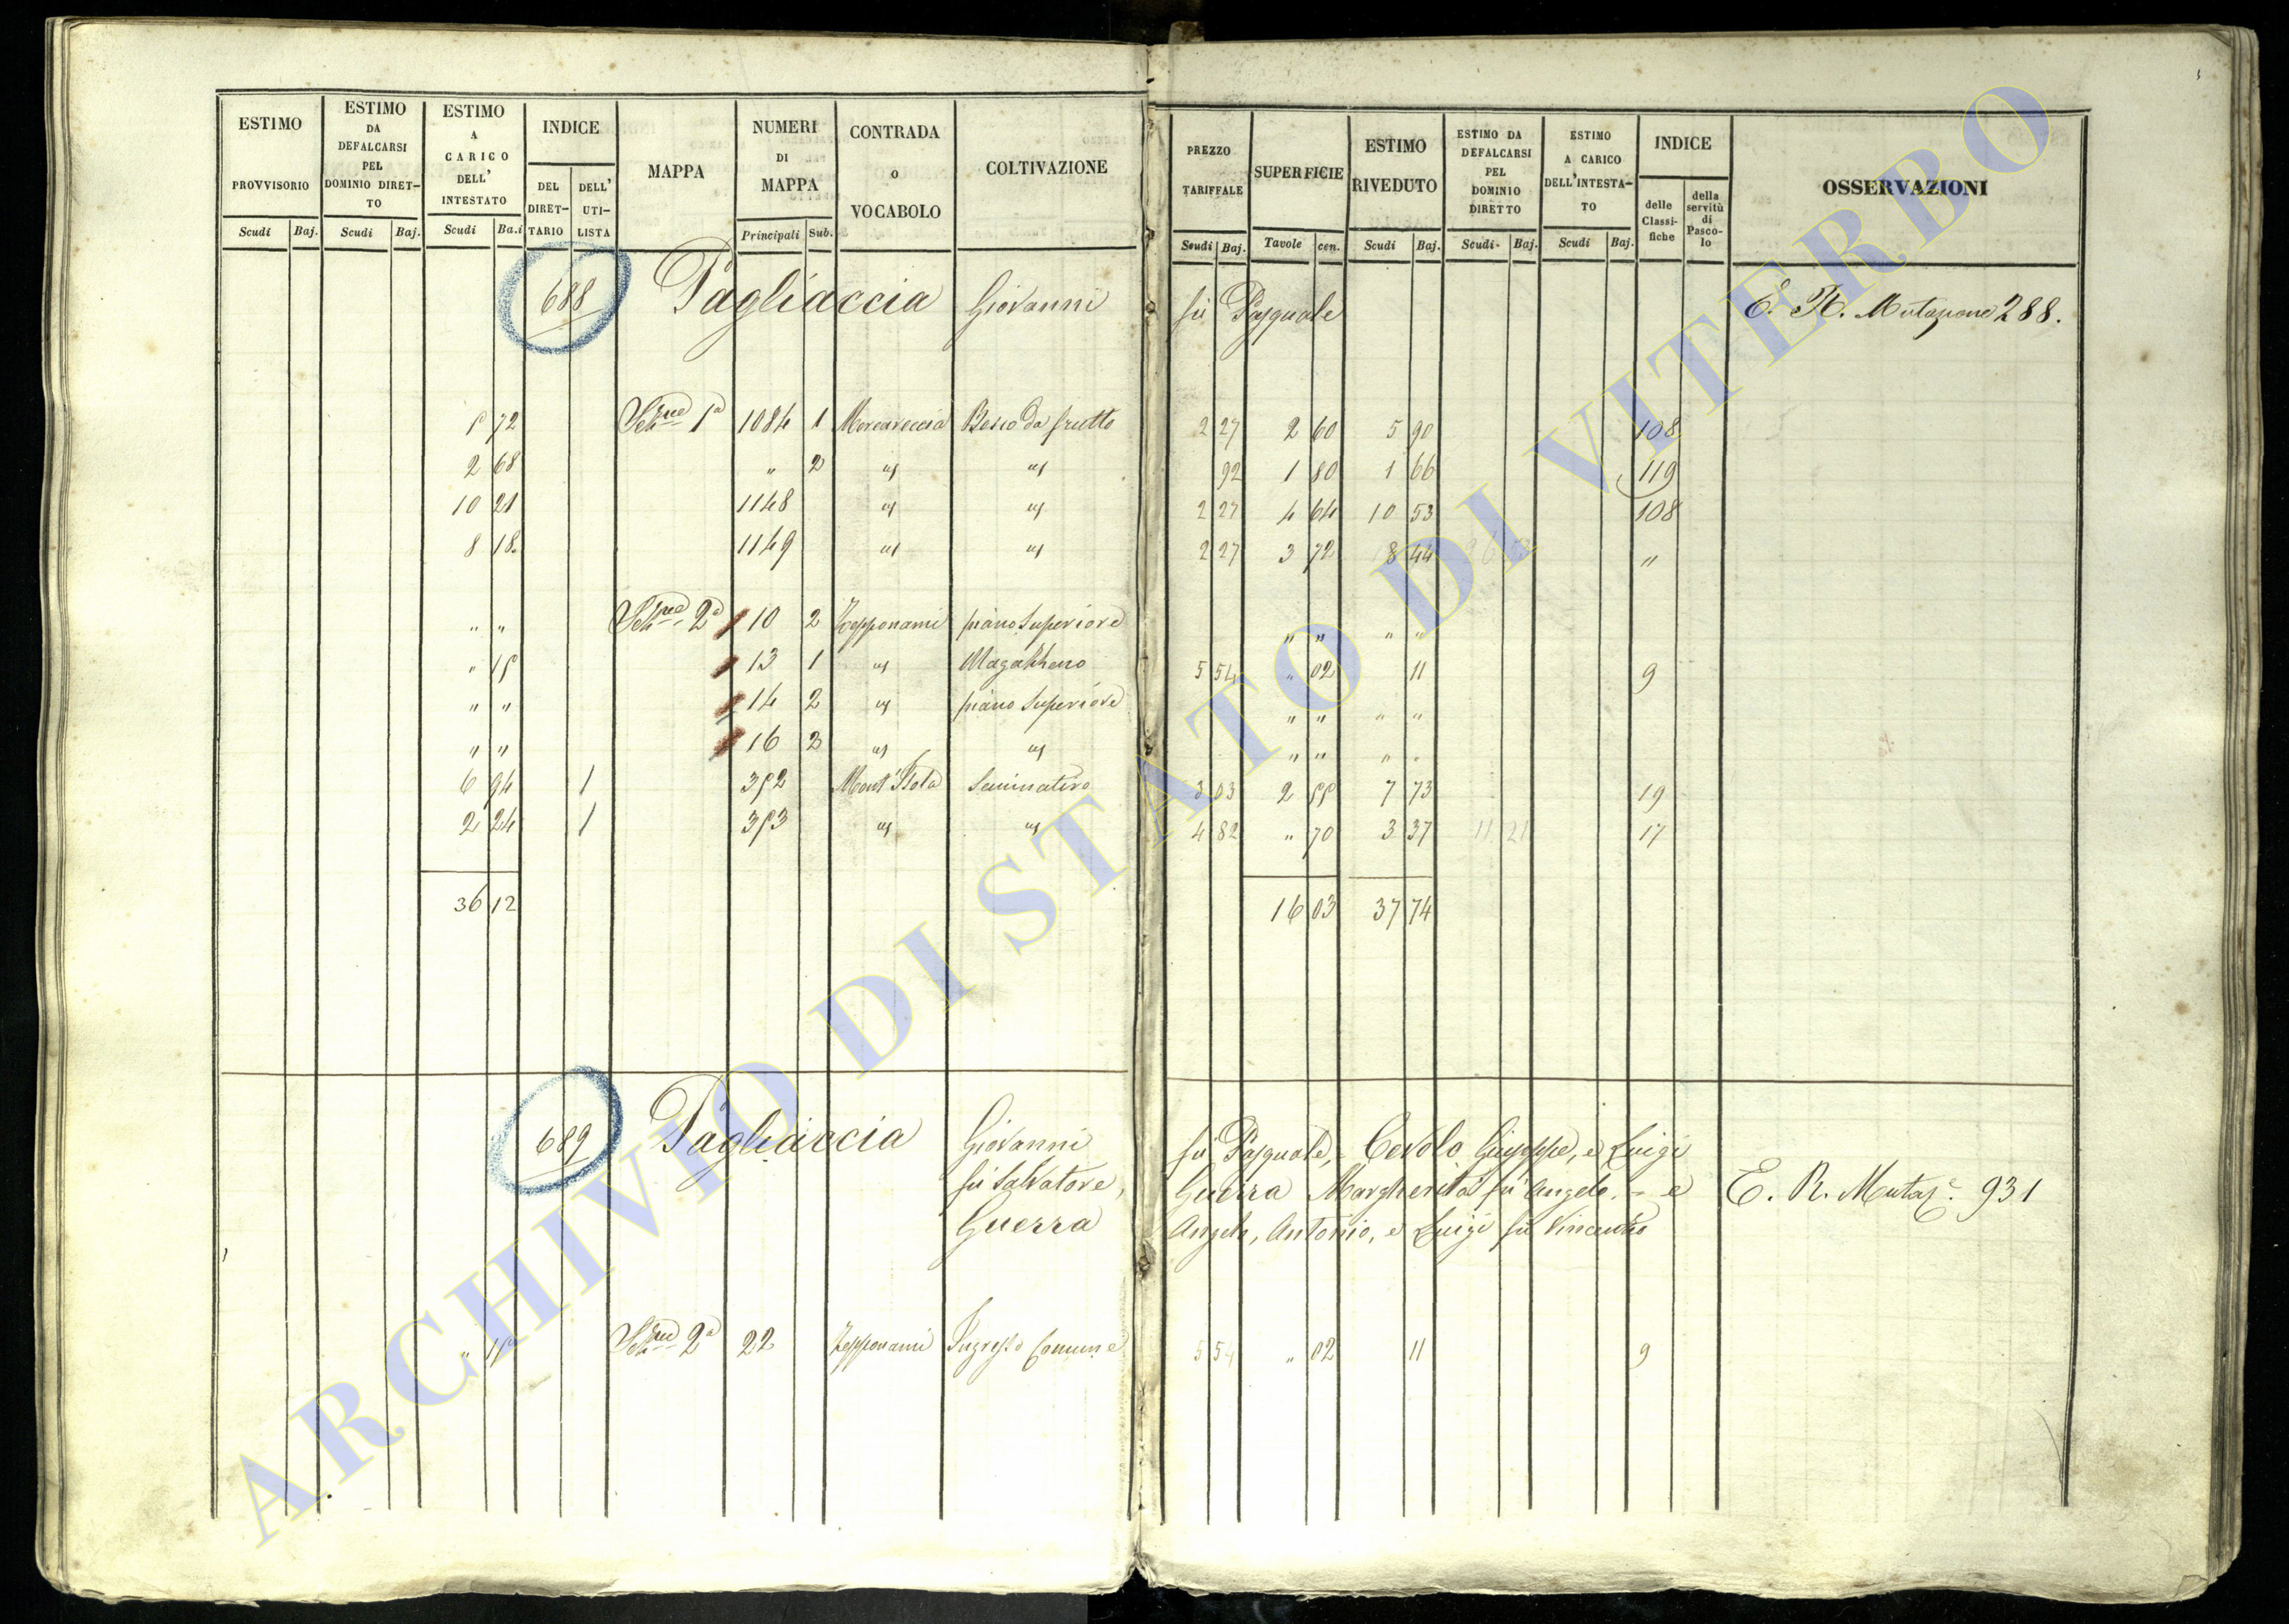 ESTIMO PROVVISORIO Scudi Baj.
ESTIMO DA DEFALCARSI PEL DOMINIO DIRET-TO Scudi Baj.
ESTIMO A CARICO DELL' INTESTATO Scudi Ba.i
INDICE DEL DIRET-TARIO DELL' UTI-LISTA
MAPPA
NUMERI DI MAPPA Principali Sub.
CONTRADA O VOCABOLO
COLTIVAZIONE
PREZZO TARIFFALE Scudi Baj.
SUPERFICIE Tavole cen.
ESTIMO RIVEDUTO Scudi Baj.
ESTIMO DA DEFALCARSI PEL DOMINIO DIRETTO Scudi Baj.
ESTIMO A CARICO DELL'INTESTA-TO Scudi Baj.
INDICE delle Classi-fiche della servitù di Pasco-lo
OSSERVAZIONI
688 Pagliaccia Giovanni fu Pasquale E. R. Mutazione 288.
5 72 Sez.ne 1a 1084 1 Bosco da frutto 2 27 2 60 5 90 108
2 68 " 2 " " 92 1 80 1 66 119
10 21 1148 " " 2 27 4 64 10 53 108
8 18 1149 " " 2 27 3 72 8 44 "
" " Sez.ne 2a 10 2 Zepponami piano superiore " " " "
" 15 13 1 " Magazzeno 5 54 " 02 11 9
" " 14 2 " piano superiore " " " "
" " 16 2 " " " " " "
6 94 1 352 Seminativo 3 03 2 55 7 73 19
2 24 1 353 " " 4 82 " 70 3 37 11 21 17
36 12 16 03 37 74
689 Pagliaccia Giovanni fu Pasquale, Cevolo Giuseppe, e Luigi
fu Salvatore, Guerra Margherita fu Angelo, e E. R. Mutaz.e 931
Guerra Angelo, Antonio, e Luigi fu Vincenzo
" 15 Sez.ne 2a 22 Zepponami Ingresso Comune 5 54 " 02 11 9
ARCHIVIO DI STATO DI VITERBO